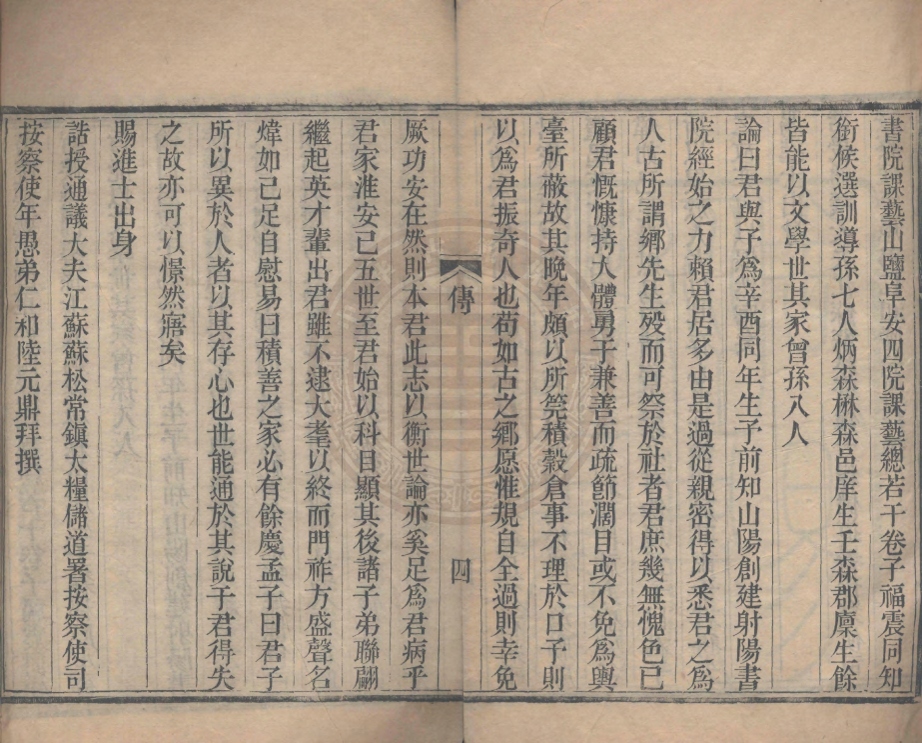 書院課藝山鹽阜安四院課藝總若干卷子福震同知
銜候選訓導孫七人炳森楙森邑庠生壬森郡廩生餘
皆能以文學世其家曾孫八人
論曰君與予爲辛酉同年生予前知山陽創建射陽書
院經始之力賴君居多由是過從親密得以悉君之爲
人古所謂鄉先生歿而可祭於社者君庶幾無愧色已
顧君慨慷持大體勇于兼善而疏節濶目或不免爲輿
臺所蔽故其晚年頗以所筦積穀倉事不理於口予則
以爲君振奇人也苟如古之鄉愿惟規自全過則幸免
傳
四
厥功安在然則本君此志以衡世論亦奚足爲君病乎
君家淮安已五世至君始以科目顯其後諸子弟聯翩
繼起英才輩出君雖不逮大耄以終而門祚方盛聲名
煒如己足自慰易曰積善之家必有餘慶孟子曰君子
所以異於人者以其存心也世能通於其說于君得失
之故亦可以憬然寤矣
賜進士出身
誥授通議大夫江蘇蘇松常鎮太糧儲道署按察使司
按察使年愚弟仁和陸元鼎拜撰